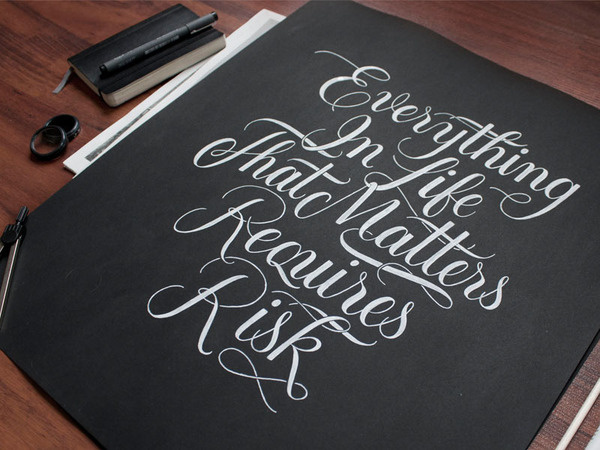 Everything
In Life
That Matters
Requires
Risk